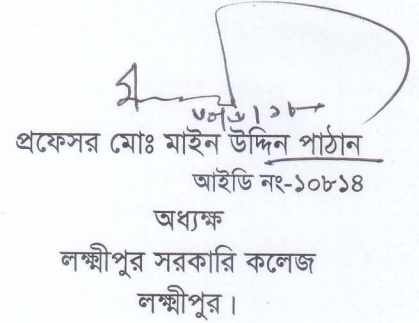 প্রফেসর মোঃ মাইন উদ্দিন পাঠান
আইডি নং-১০৮১৪
অধ্যক্ষ
লক্ষ্মীপুর সরকারি কলেজ
লক্ষ্মীপুর।